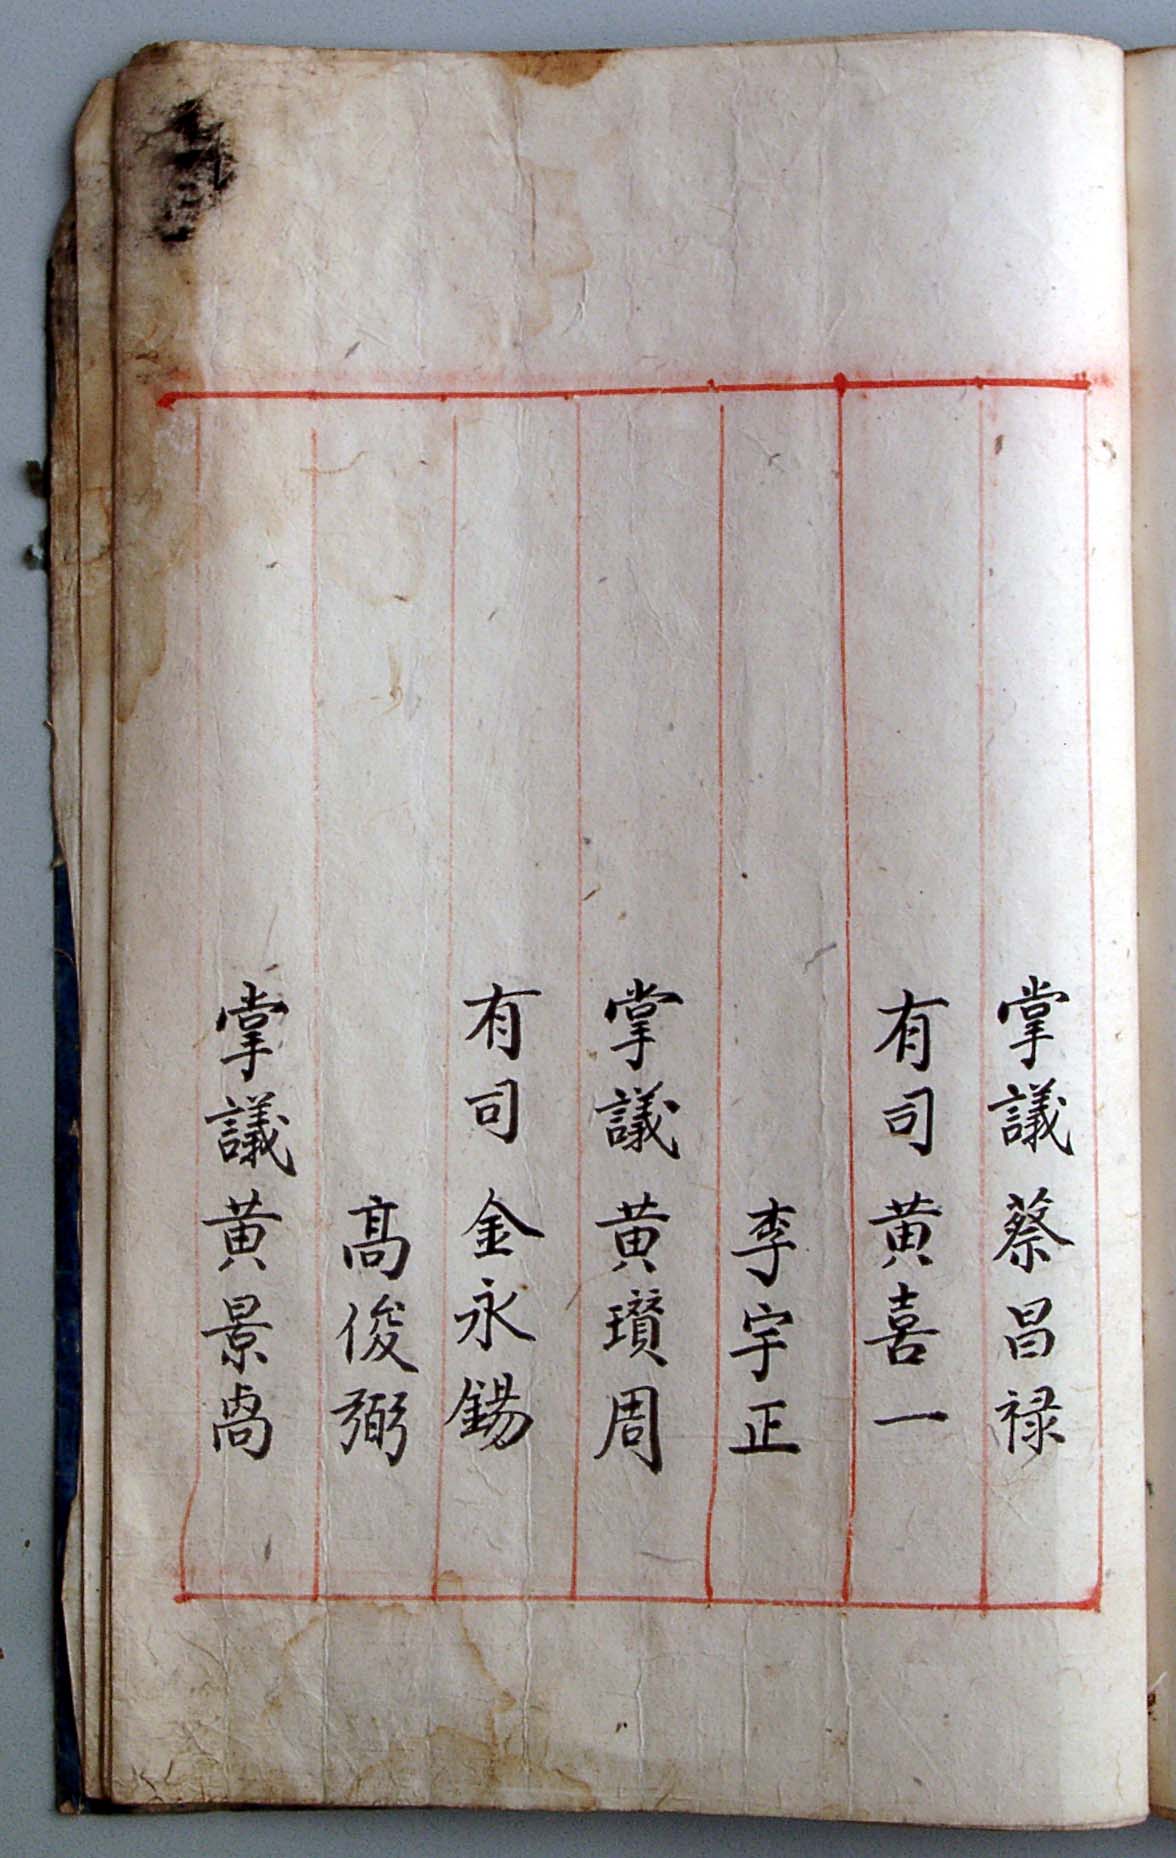 掌議 蔡昌禄
有司 黄喜一
李宇正
掌議 黄瓚周
有司 金永錫
高俊弼
掌議 黄景